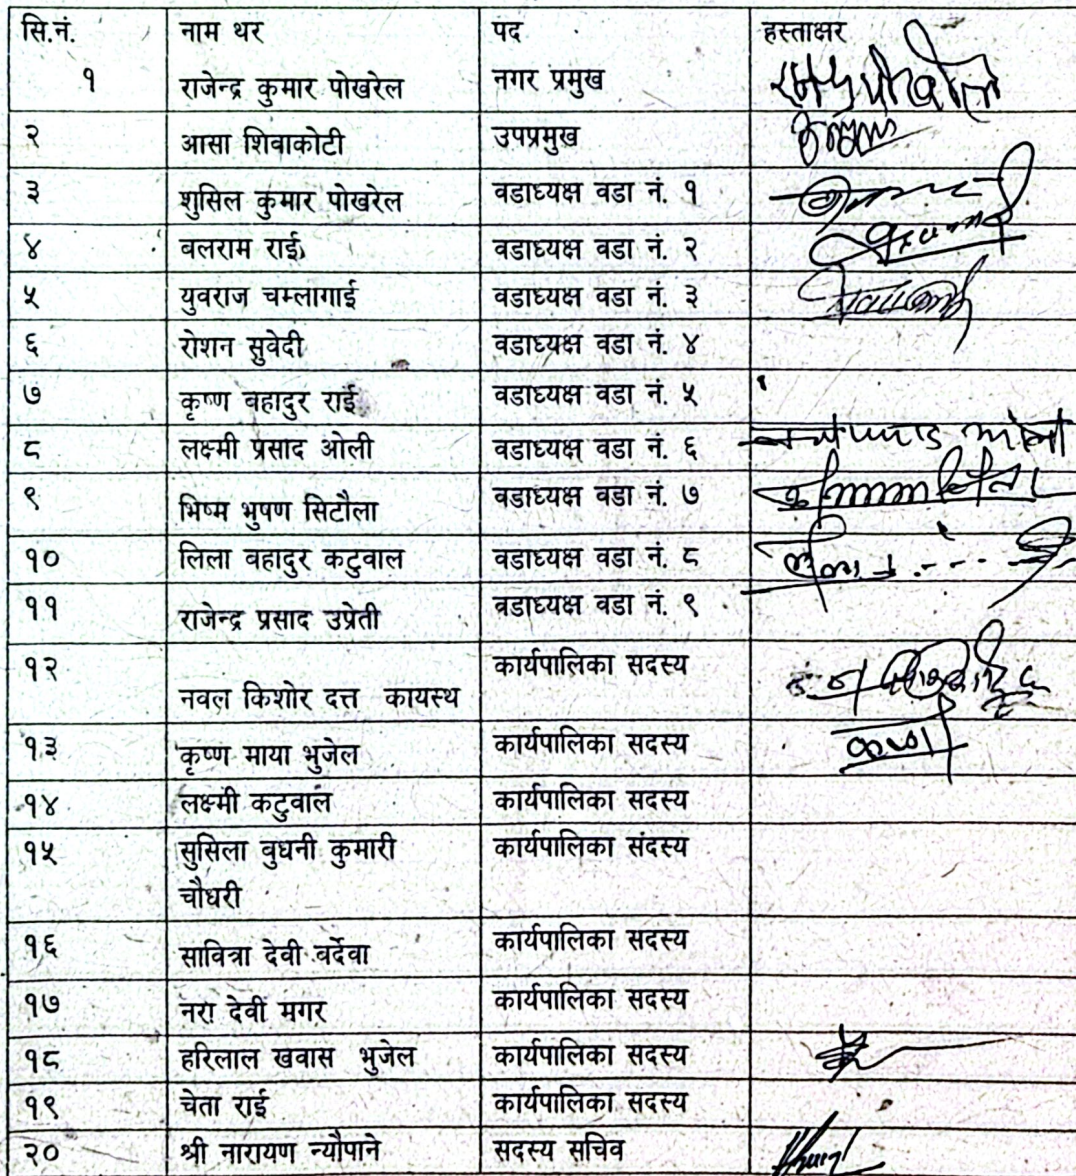 सि.नं. नाम थर पद हस्ताक्षर
१ राजेन्द्र कुमार पोखरेल नगर प्रमुख
२ आसा शिवाकोटी उपप्रमुख
३ शुसिल कुमार पोखरेल वडाध्यक्ष वडा नं. १
४ बलराम राई वडाध्यक्ष वडा नं. २
५ युवराज चम्लागाई वडाध्यक्ष वडा नं. ३
६ रोशन सुवेदी वडाध्यक्ष वडा नं. ४
७ कृष्ण बहादुर राई वडाध्यक्ष वडा नं. ५
८ लक्ष्मी प्रसाद ओली वडाध्यक्ष वडा नं. ६
९ भिष्म भुषण सिटौला वडाध्यक्ष वडा नं. ७
१० लिला वहादुर कटुवाल वडाध्यक्ष वडा नं. ८
११ राजेन्द्र प्रसाद उप्रेती वडाध्यक्ष वडा नं. ९
१२ नवल किशोर दत्त कायस्थ कार्यपालिका सदस्य
१३ कृष्ण माया भुजेल कार्यपालिका सदस्य
१४ लक्ष्मी कटुवाल कार्यपालिका सदस्य
१५ सुसिला वुधनी कुमारी कार्यपालिका सदस्य
चौधरी
१६ सावित्रा देवी वर्देवा कार्यपालिका सदस्य
१७ नरा देवी मगर कार्यपालिका सदस्य
१८ हरिलाल खवास भुजेल कार्यपालिका सदस्य
१९ चेता राई कार्यपालिका सदस्य
२० श्री नारायण न्यौपाने सदस्य सचिव